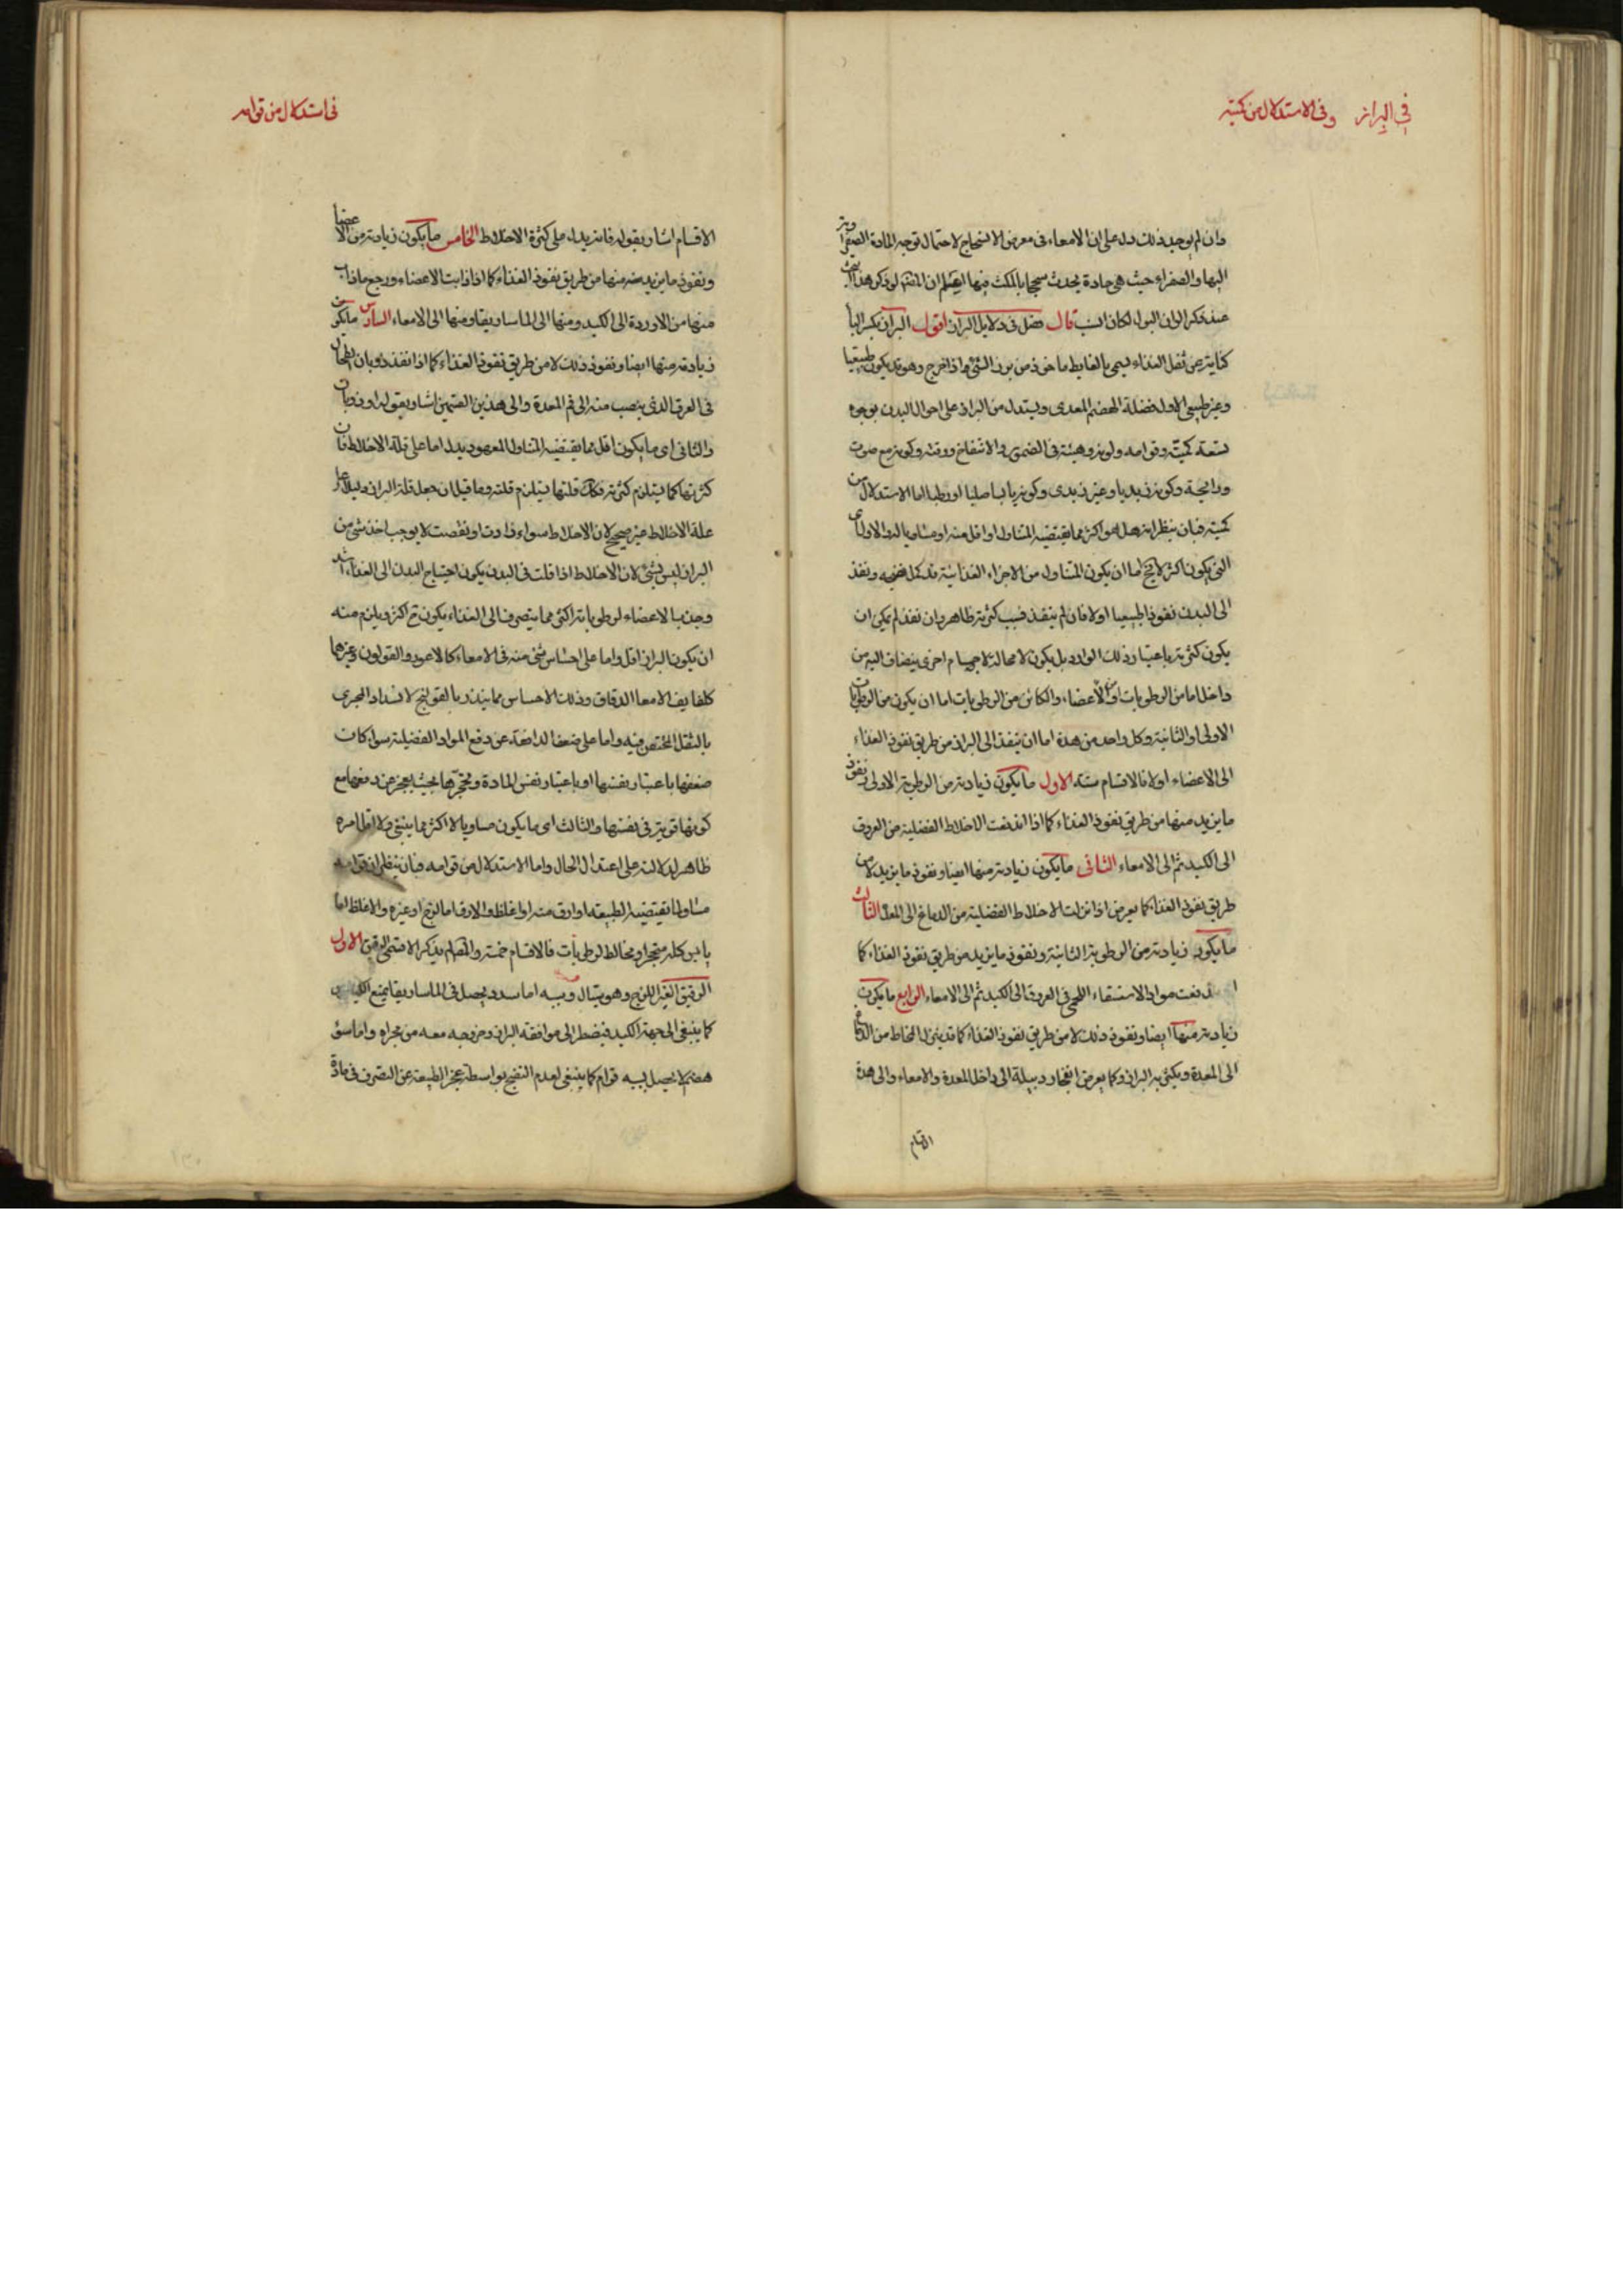 في البراز وفى الاستدلال من كميته
وان لم يوجد ذلك دل على ان الامعاء فى معرض الانسحاج لاحتمال توجه المادة الصفراوية
اليها والصفراء حيث هى حادة يحدث سحجا بالمكث فيها ان المص لو ذكر هذا
عند ذكر الوان البول لكان انسب قال فصل فى دلايل البراز اقول البراز بكسر البا
كناية عن ثفل الغذاء يسمى بالغايط ماخوذ من برز الشئ اذا خرج وهو قد يكون طبيعيا
وغير طبيعى الاول فضلة الهضم المعدى ويستدل من البراز على احوال البدن بوجوه
تسعة كميته وقوامه ولونه وهيئته فى الضمور والانتفاخ ووقته وكونه مع صوت
ورايحته وكونه زبديا وغير زبدى وكونه يابسا صلبا او رطبا اما الاستدلال من
كميته فبان ينظر انه هل هو اكثر مما يقتضيه المتناول او اقل منه او مساويا له والاول اى
الذى يكون اكثر لا يخ اما ان يكون المتناول من الاجزاء الغذائية قد كمل هضمه ونفذ
الى البدن نفوذا طبيعيا اولا فان لم ينفذ فسبب كثرته ظاهر وان نفذ لم يمكن ان
يكون كثرته باعتبار ذلك الوارد بل يكون لا محالة لاجسام اخرى ينضاف اليه من
داخل اما من الرطوبات او من الاعضاء والكائن من الرطوبات اما ان يكون من الرطوبات
الاولى او الثانية وكل واحد من هذه اما ان ينفذ الى البراز من طريق نفوذ الغذاء
الى الاعضاء اولا فالاقسام ستة الاول ما يكون زيادته من الرطوبة الاولى ونفوذ
ما يزيد منها من طريق نفوذ الغذاء كما اذا اندفعت الاخلاط الفضلية من العروق
الى الكبد ثم الى الامعاء الثانى ما يكون زيادته منها ايضا ونفوذ ما يزيد لا من
طريق نفوذ الغذاء كما يعرض اذا نزلت الاخلاط الفضلية من الدماغ الى المعدة الثالث
ما يكون زيادته من الرطوبة الثانية ونفوذ ما يزيد من طريق نفوذ الغذاء كما
اندفعت مواد الاستسقاء اللحمى فى العروق الى الكبد ثم الى الامعاء الرابع ما يكون
زيادته منها ايضا ونفوذ ذلك لا من طريق نفوذ الغذاء كما قد ينزل المخاط من الدماغ
الى المعدة ويكثر به البراز وكما يعرض انفجار دبيلة الى داخل المعدة والامعاء والى هذه
الاقسام
فى استدلال من قوامه
الاقسام اشار بقوله فانه يدل على كثرة الاخلاط الخامس ما يكون زيادته من الاعضا
ونفوذ ما يزيد منه منها من طريق نفوذ الغذاء كما اذا ذابت الاعضاء ورجع ما ذاب
منها من الاوردة الى الكبد ومنها الى الماساريقا ومنها الى الامعاء السادس ما يكون
زيادته منها ايضا ونفوذ ذلك لا من طريق نفوذ الغذاء كما اذا نفذ ذوبان الطحال
فى العرق الذى ينصب منه الى فم المعدة والى هذين القسمين اشار بقوله او ذوبان
والثانى اى ما يكون اقل مما يقتضيه المتناول المعهود يدل اما على قلة الاخلاط فان
كثرتها كما يستلزم كثرته فكذلك قلتها يستلزم قلته وما قيل ان جعل قلة البراز دليلا على
قلة الاخلاط غير صحيح لان الاخلاط سواء زادت او نقصت لا يوجب اخذ شئ من
البراز ليس بشئ لان الاخلاط اذا قلت فى البدن يكون احتياج البدن الى الغذاء اشد
وجذب الاعضاء لرطوباته اكثر مما يتصرف الى الغذاء يكون ح اكثر ويلزم منه
ان يكون البراز اقل واما على احتباس شئ منه فى الامعاء كالاعور والقولون وغيرهما
كلفايف الامعا الدقاق وذلك الاحتباس مما ينذر بالقولنج لانسداد المجرى
بالثفل المحتقن فيه واما على ضعف الدافعة عن دفع المواد الفضلية سواء كانت
ضعفها باعتبار نفسها او باعتبار نفس المادة وتحجرها بحيث يعجز عن دفعها مع
كونها قوية فى نفسها والثالث اى ما يكون مساويا لا اكثر مما ينبغى ولا اقل امره
ظاهر لدلالته على اعتدال الحال واما الاستدلال من قوامه فبان ينظر ان قوامه
مساو لما يقتضيه الطبيعة او ارق منه او اغلظ والارق اما لزج او غيره والاغلظ اما
يابس كله متحجر او مخالط لرطوبات فالاقسام خمسة والمص لم يذكر الا قسمى الرقيق الاول
الرقيق الغير اللزج وهو يتبال وسببه اما سدد يحصل فى الماساريقا يمنع الكيلوس
كما ينبغى الى جهة الكبد فيضطر الى موافقة البراز وخروجه معه من مجراه واما سوء
هضم لا يحصل بسببه قوام كما ينبغى لعدم النضج بواسطة عجز الطبيعة عن التصرف فى مادة